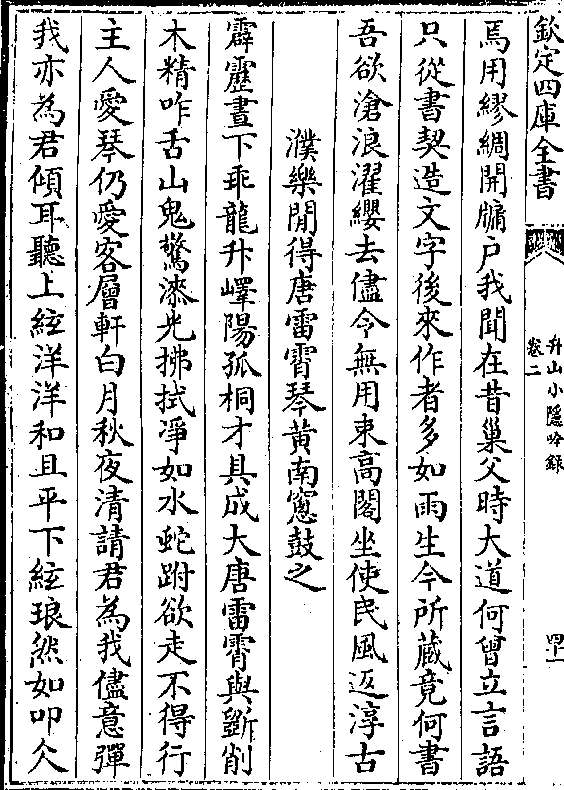 欽定四庫全書
升山小隱吟録
卷二
四十一
焉用繆綢開牖户我聞在昔巢父時大道何曾立言語
只從書契造文字後來作者多如雨生今所藏竟何書
吾欲滄浪濯纓去儘令無用束高閣坐使民風返淳古
濮樂閒得唐雷霄琴黄南窻鼓之
霹靂晝下乖龍升嶧陽孤桐才具成大唐雷霄與斵削
木精咋舌山鬼驚漆光拂拭凈如水蛇跗欲走不得行
主人愛琴仍愛客層軒白月秋夜清請君為我儘意彈
我亦為君傾耳聽上絃洋洋和且平下絃琅然如叩欠